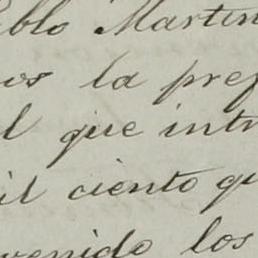 ablo Martin
os la pref
l que intr
il ciento qu
venido los